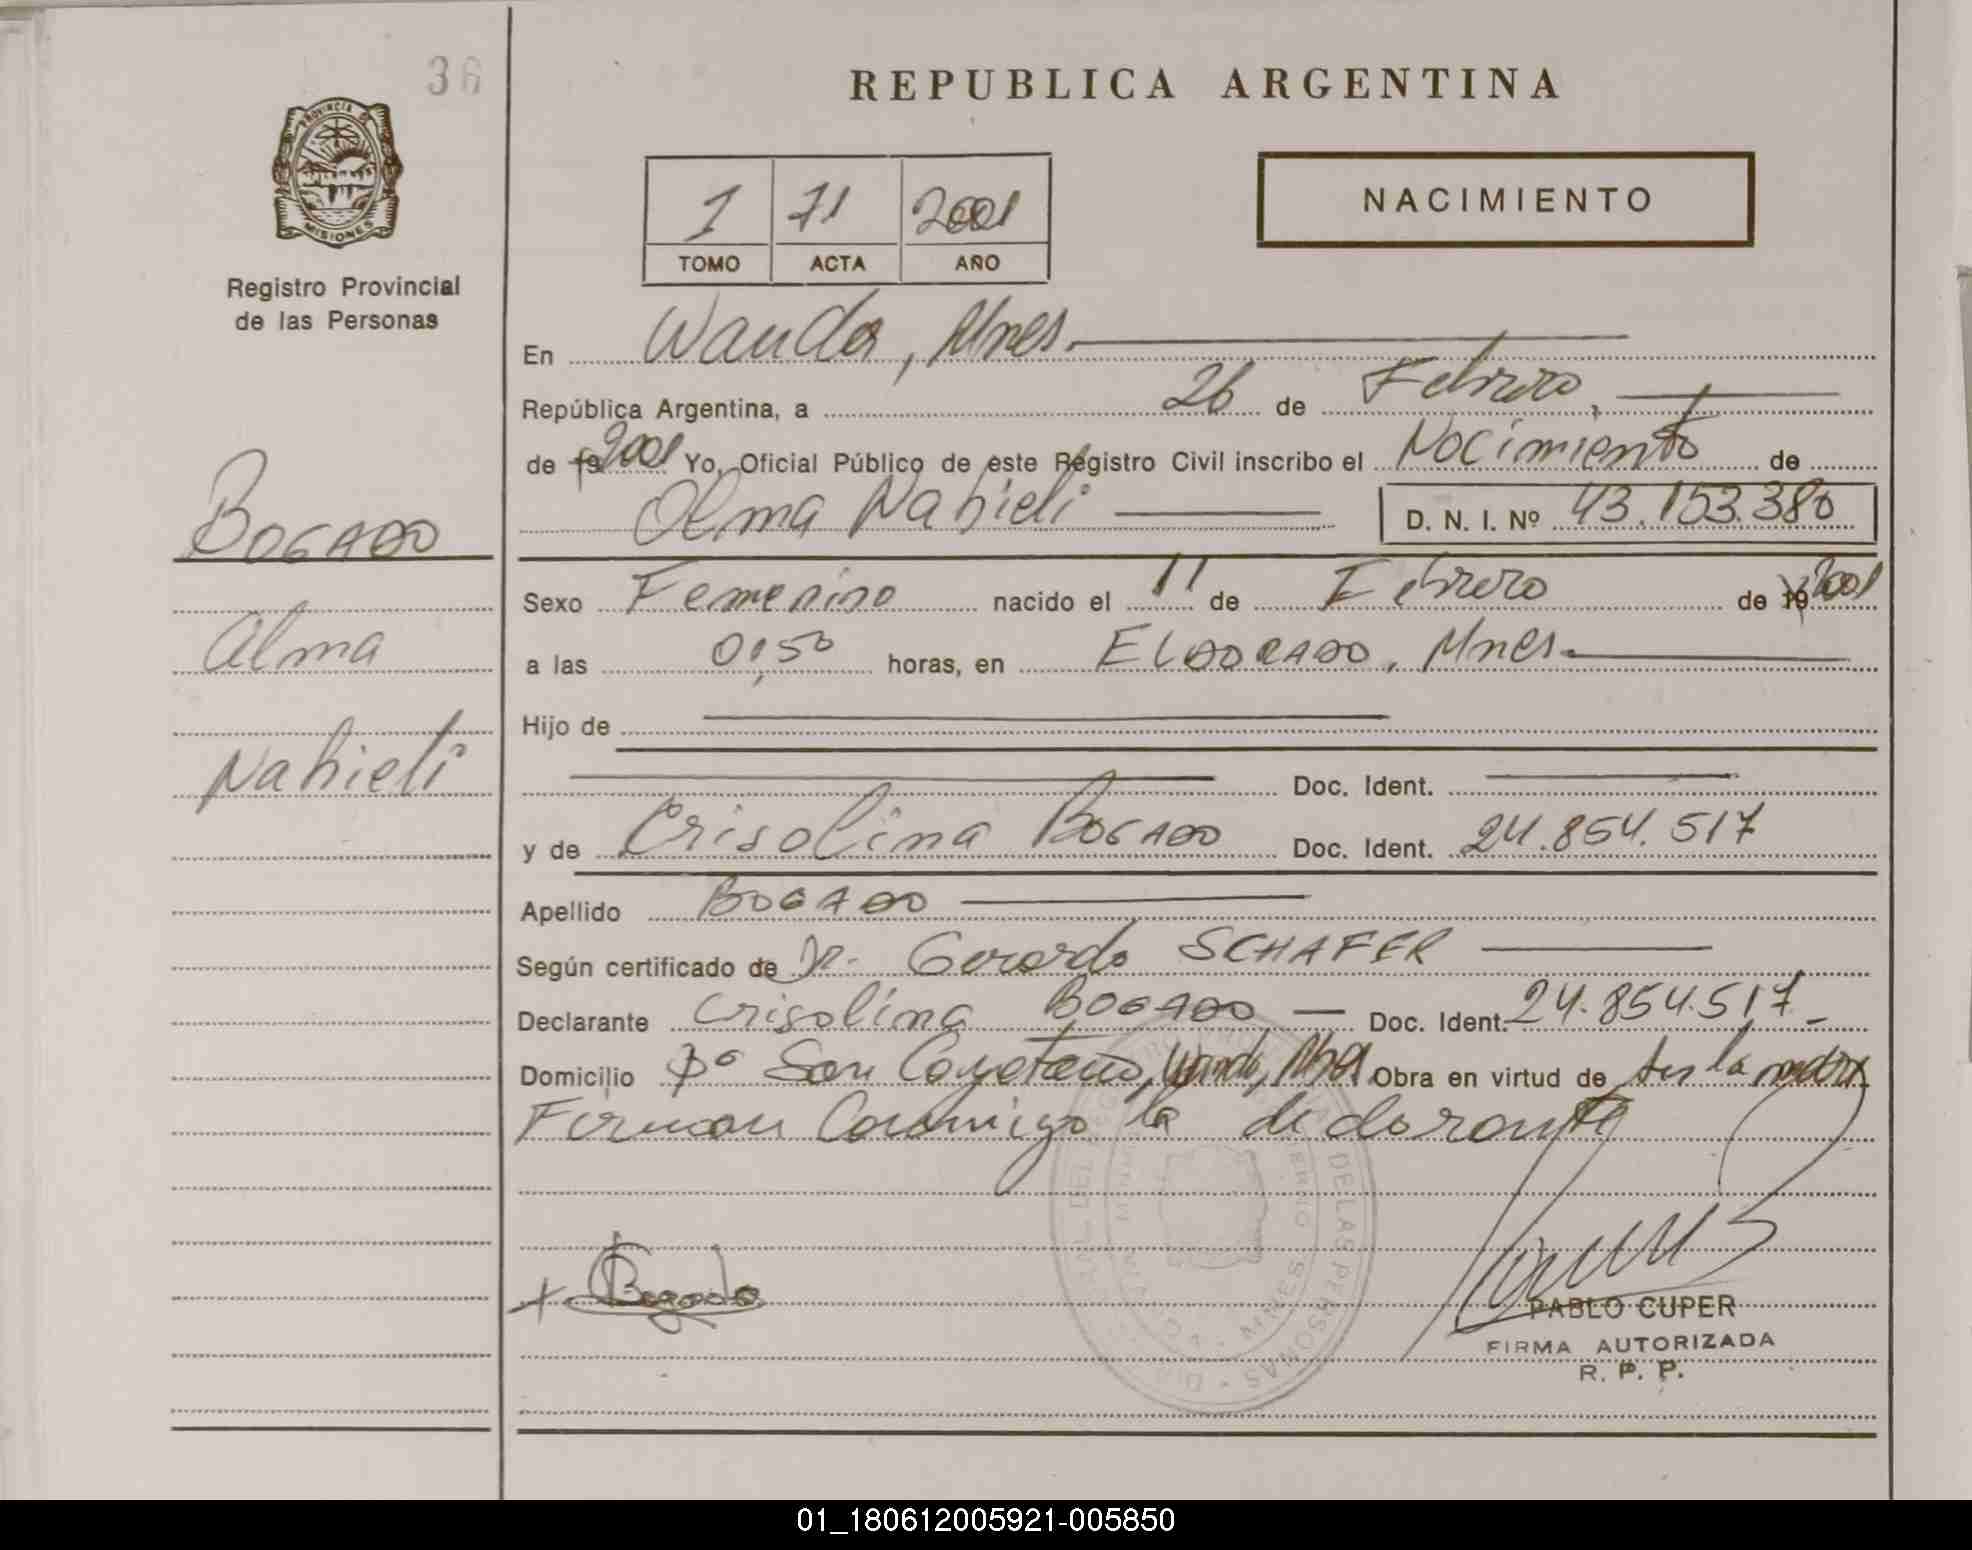 36
REPUBLICA ARGENTINA
PROVINCIA DE
MISIONES
Registro Provincial
de las Personas
NACIMIENTO
1 71 2001
TOMO ACTA AÑO
En Wanda, Mnes.
República Argentina, a 26 de Febrero,
de 19 2001 Yo, Oficial Público de este Registro Civil inscribo el Nacimiento de
Alma Nahieli D. N. I. Nº 43.153.380
BOGADO
Alma
Nahieli
Sexo Femenino nacido el 11 de Febrero de 19 2001
a las 0,50 horas, en ELDORADO, Mnes.
Hijo de
Doc. Ident.
y de Crisolina BOGADO Doc. Ident. 24.854.517
Apellido BOGADO
Según certificado de Dr. Gerardo SCHAFER
Declarante Crisolina BOGADO Doc. Ident. 24.854.517
Domicilio Bº San Cayetano, Wanda, Mnes Obra en virtud de ser la madre
Firman Conmigo la declarante
Bogado
PABLO CUPER
FIRMA AUTORIZADA
R. P. P.
01_180612005921-005850